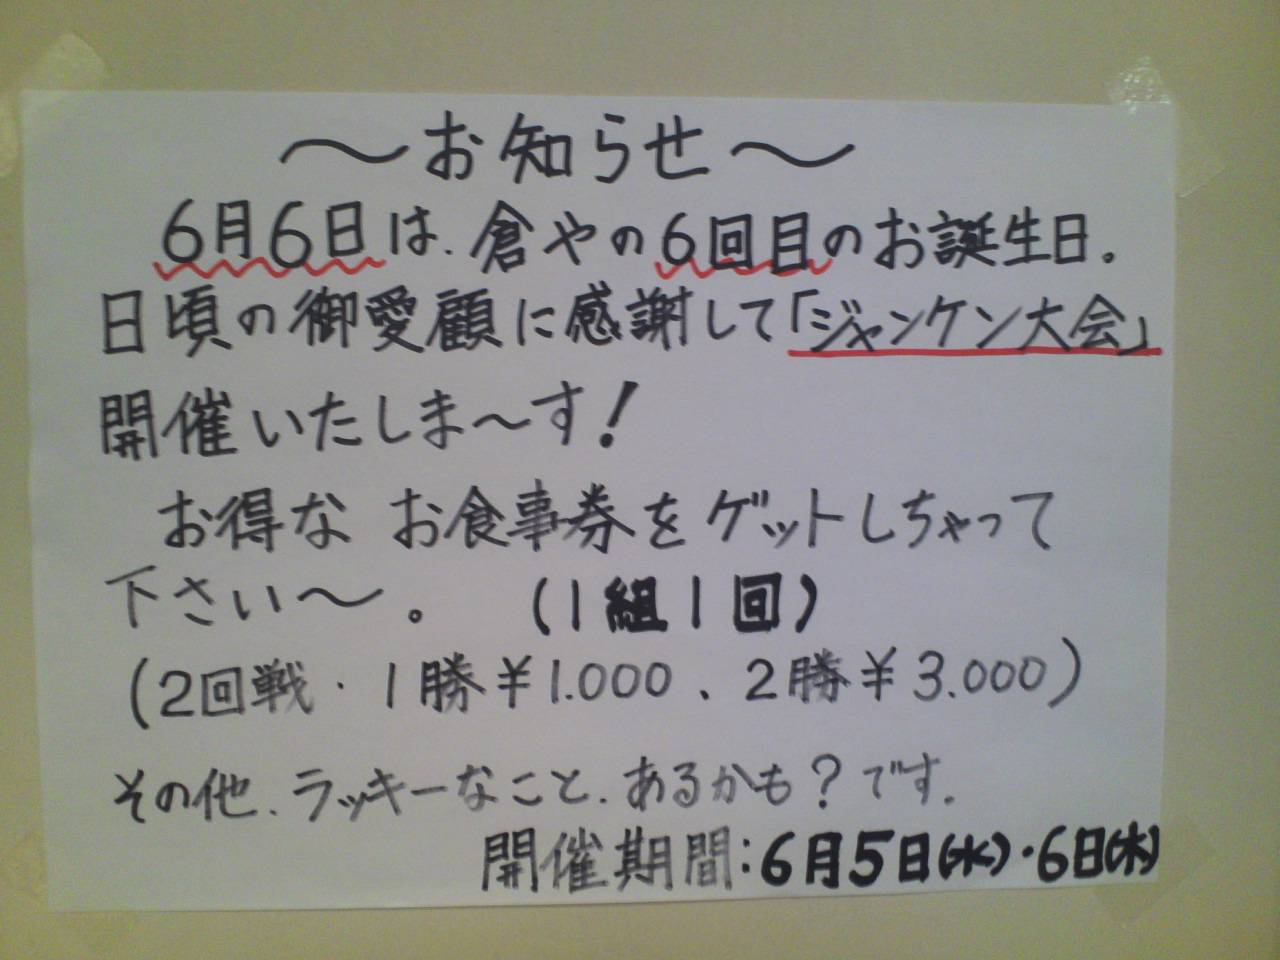 ～お知らせ～
6月6日は、倉やの6回目のお誕生日。
日頃の御愛顧に感謝して「ジャンケン大会」
開催いたしま～す!
お得な お食事券をゲットしちゃって
下さい～。 (1組1回)
(2回戦・1勝¥1.000、2勝¥3.000)
その他、ラッキーなこと、あるかも?です。
開催期間:6月5日(水)・6日(木)